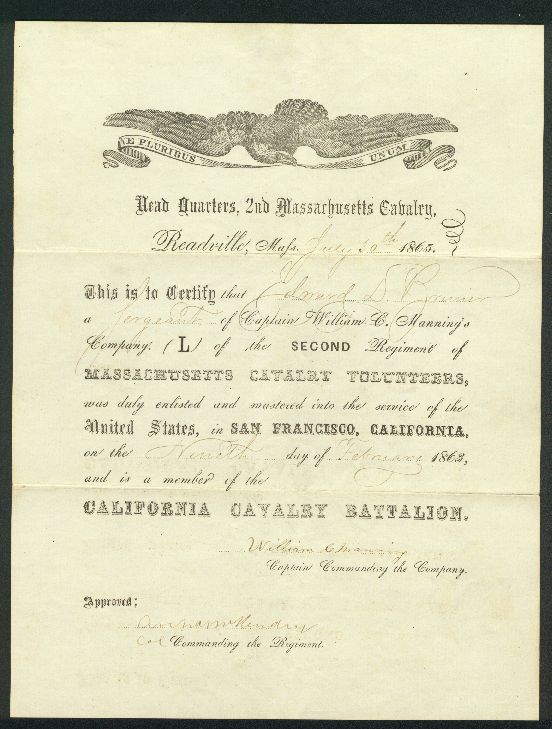 E PLURIBUS UNUM
Head Quarters, 2nd Massachusetts Cavalry,
Readville, Mass. July 20th 1865.
This is to Certify that Edward D.
a Sergeant of Captain William C. Manning's
Company, (L) of the SECOND Regiment of
MASSACHUSETTS CAVALRY VOLUNTEERS,
was duly enlisted and mustered into the service of the
United States, in SAN FRANCISCO, CALIFORNIA,
on the Nineth day of February 1863,
and is a member of the
CALIFORNIA CAVALRY BATTALION.
William C Manning
Captain Commanding the Company.
Approved:
Col Commanding the Regiment.